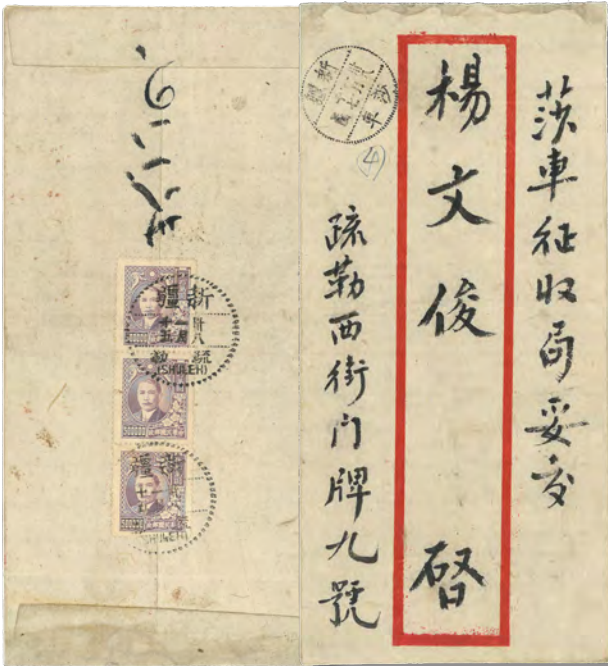 莎車征收局妥交
楊文俊 啓
疏勒西街门牌九號
新疆
莎車
4
新疆
卅八
一月
十五
疏勒
(SHULEH)
新疆
(SHULEH)